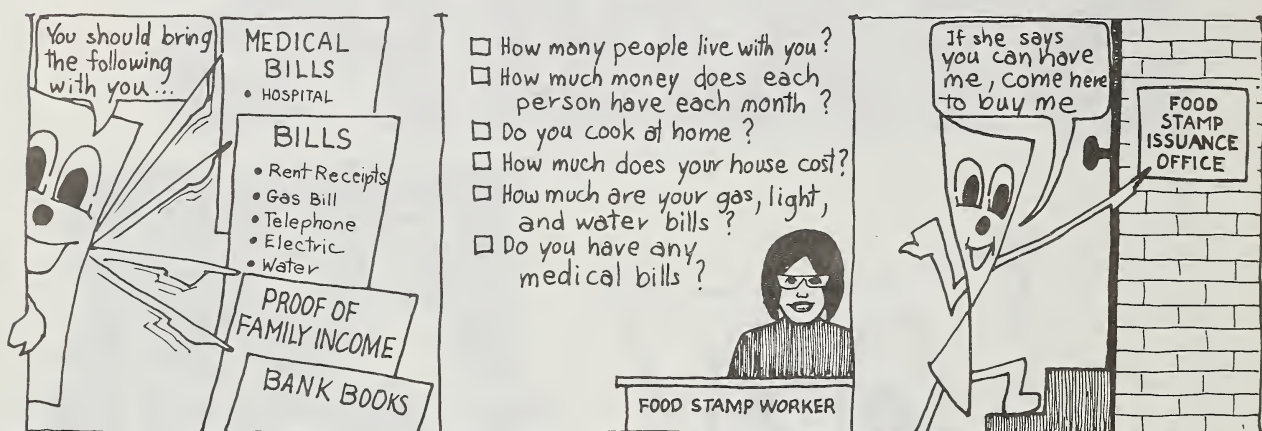 You should bring
the following
with you...
MEDICAL
BILLS
• HOSPITAL
BILLS
• Rent Receipts
• Gas Bill
• Telephone
• Electric
• Water
PROOF OF
FAMILY INCOME
BANK BOOKS
□ How many people live with you?
□ How much money does each
person have each month?
□ Do you cook at home?
□ How much does your house cost?
□ How much are your gas, light,
and water bills?
□ Do you have any
medical bills?
FOOD STAMP WORKER
If she says
you can have
me, come here
to buy me
FOOD
STAMP
ISSUANCE
OFFICE